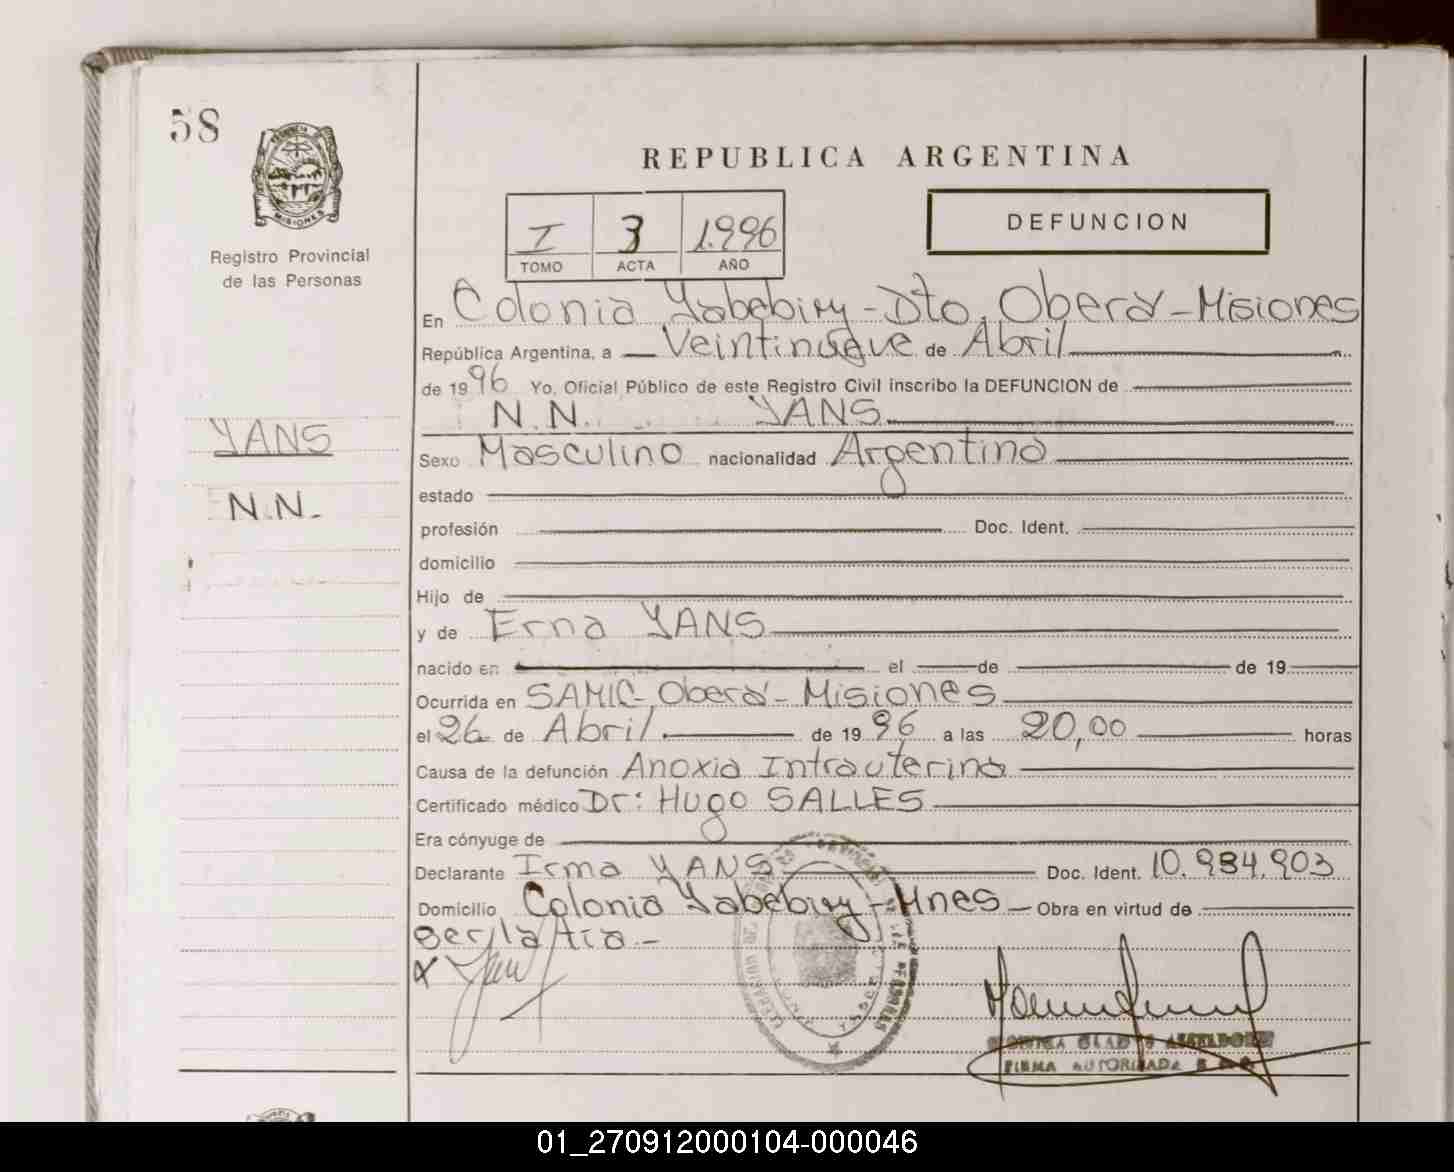 58
MISIONES
Registro Provincial
de las Personas
YANS
N.N.
REPUBLICA ARGENTINA
I 3 1.996
TOMO ACTA AÑO
DEFUNCION
En Colonia Yabebiry - Dto. Oberá - Misiones
República Argentina, a Veintinueve de Abril
de 1996 Yo, Oficial Público de este Registro Civil inscribo la DEFUNCION de
N.N. YANS
Sexo Masculino nacionalidad Argentina
estado
profesión Doc. Ident.
domicilio
Hijo de
y de Erna YANS
nacido en el de de 19
Ocurrida en SAMIC - Oberá - Misiones
el 26 de Abril de 1996 a las 20,00 horas
Causa de la defunción Anoxia Intrauterina
Certificado médico Dr: Hugo SALLES
Era cónyuge de
Declarante Irma YANS Doc. Ident. 10.984.903
Domicilio Colonia Yabebiry - Mnes - Obra en virtud de
ser la tía -
FIRMA AUTORIZADA
01_270912000104-000046